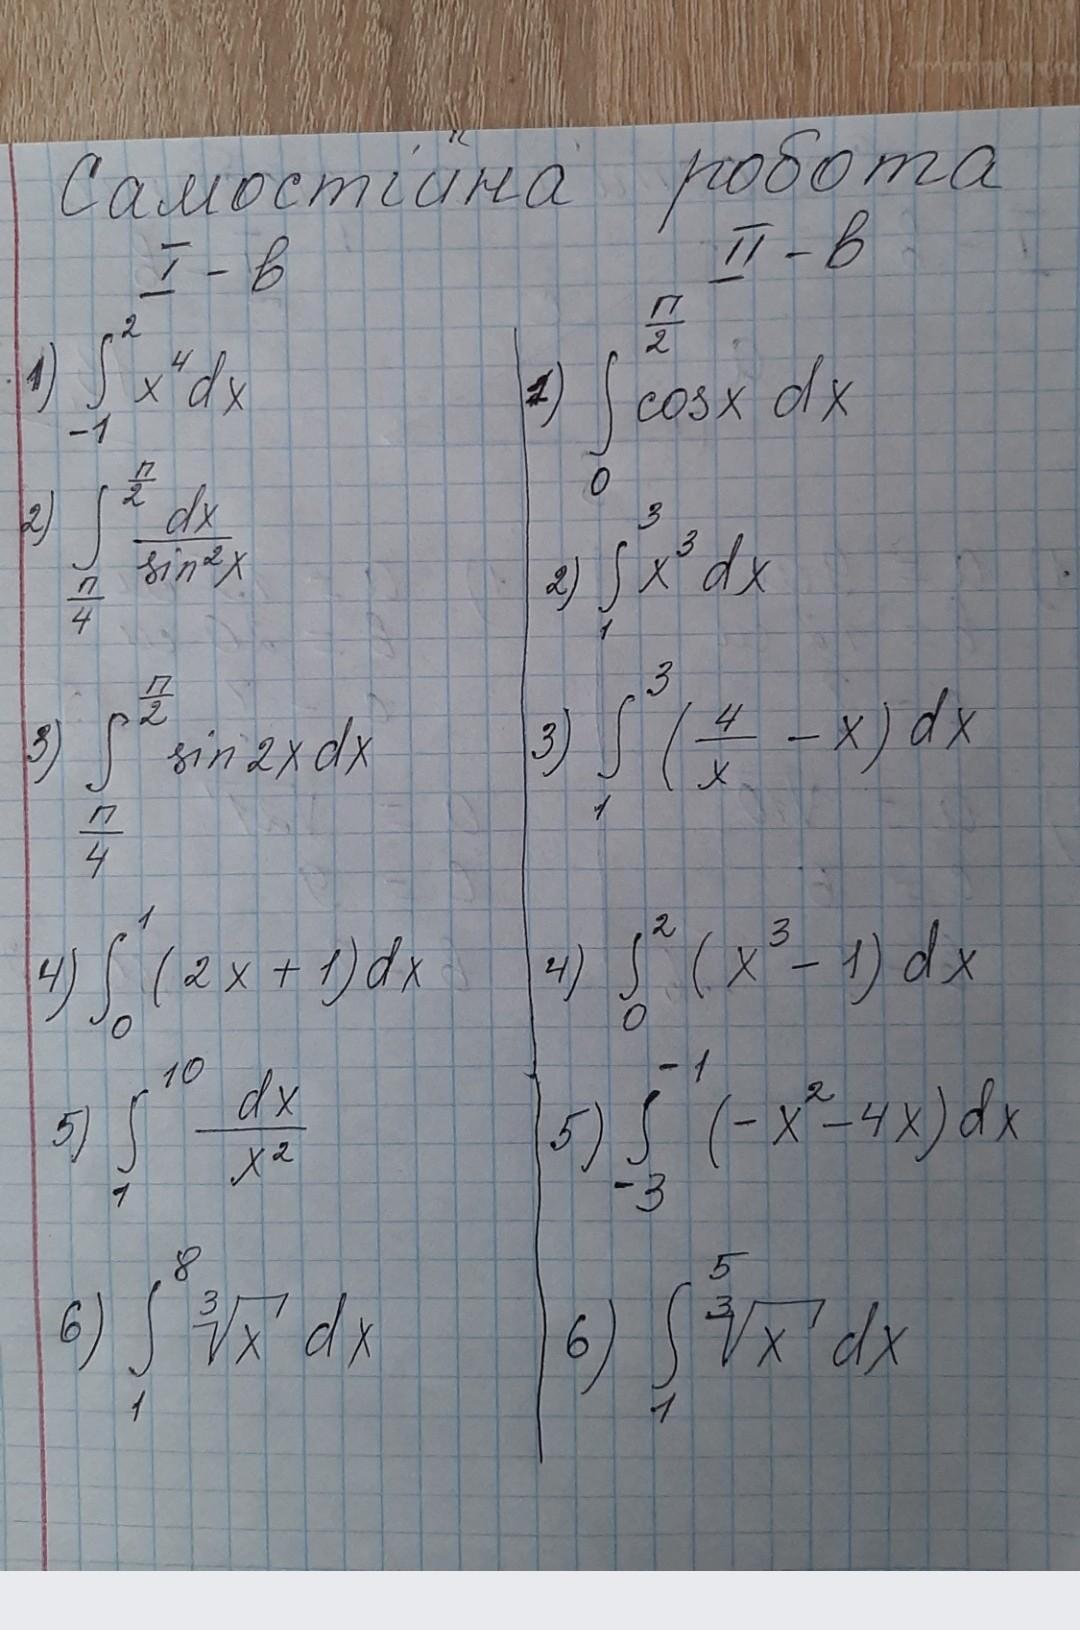 Самостійна робота
I - в
1) ∫₋₁² x⁴dx
2) ∫_{π/4}^{π/2} dx/sin²x
3) ∫_{π/4}^{π/2} sin2xdx
4) ∫₀¹ (2x+1)dx
5) ∫₁¹⁰ dx/x²
6) ∫₁⁸ ∛x dx
II - в
1) ∫₀^{π/2} cosx dx
2) ∫₁³ x³dx
3) ∫₁³ (4/x - x)dx
4) ∫₀² (x³-1)dx
5) ∫₋₃⁻¹ (-x²-4x)dx
6) ∫₁⁵ ∛x dx